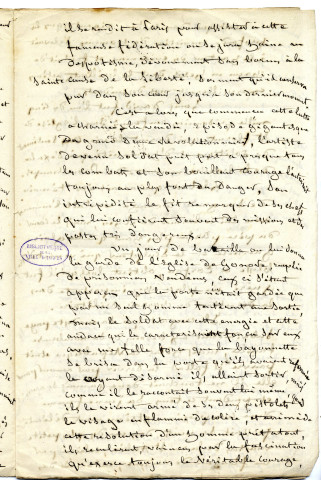 il se rendit à Paris pour assister à cette
fameuse fédération où se jura haine au
despotisme, dévouement sans bornes à la
Sainte cause de la liberté, serment qu'il conserva
pur dans son cœur jusqu'à son dernier moment
C'est alors que commença cette lutte
acharnée, la vendée, épisode gigantesque
du grand drame révolutionnaire, l'artiste
devenu soldat prit part à presque tous
les combats et son bouillant courage l'entraînait
toujours au plus fort du danger, Son
intrépidité le fit remarquer de ses chefs
qui lui confièrent souvent des missions et des
postes très dangereux.
Un jour de bataille on lui donna
la garde de l'Eglise de remplie
de prisonniers Vendéens, ceux-ci s'étant
aperçus que la porte n'était gardée que
par un seul homme tentèrent une sortie
mais, le soldat avec cette énergie et cette
audace qui le caractérisaient fonça sur eux
avec une telle force que la bayonnette
se brisa dans la porte qu'ils
le voyant désarmé ils allaient sortir,
comme il le racontait souvent lui même
ils le virent armé de ses deux pistolets
le visage enflammé de colère, et avec
cette résolution d'un homme qui
ils reculèrent, vaincus par la fascination
qu'exerce toujours le véritable courage,
BIBLIOTHEQUE